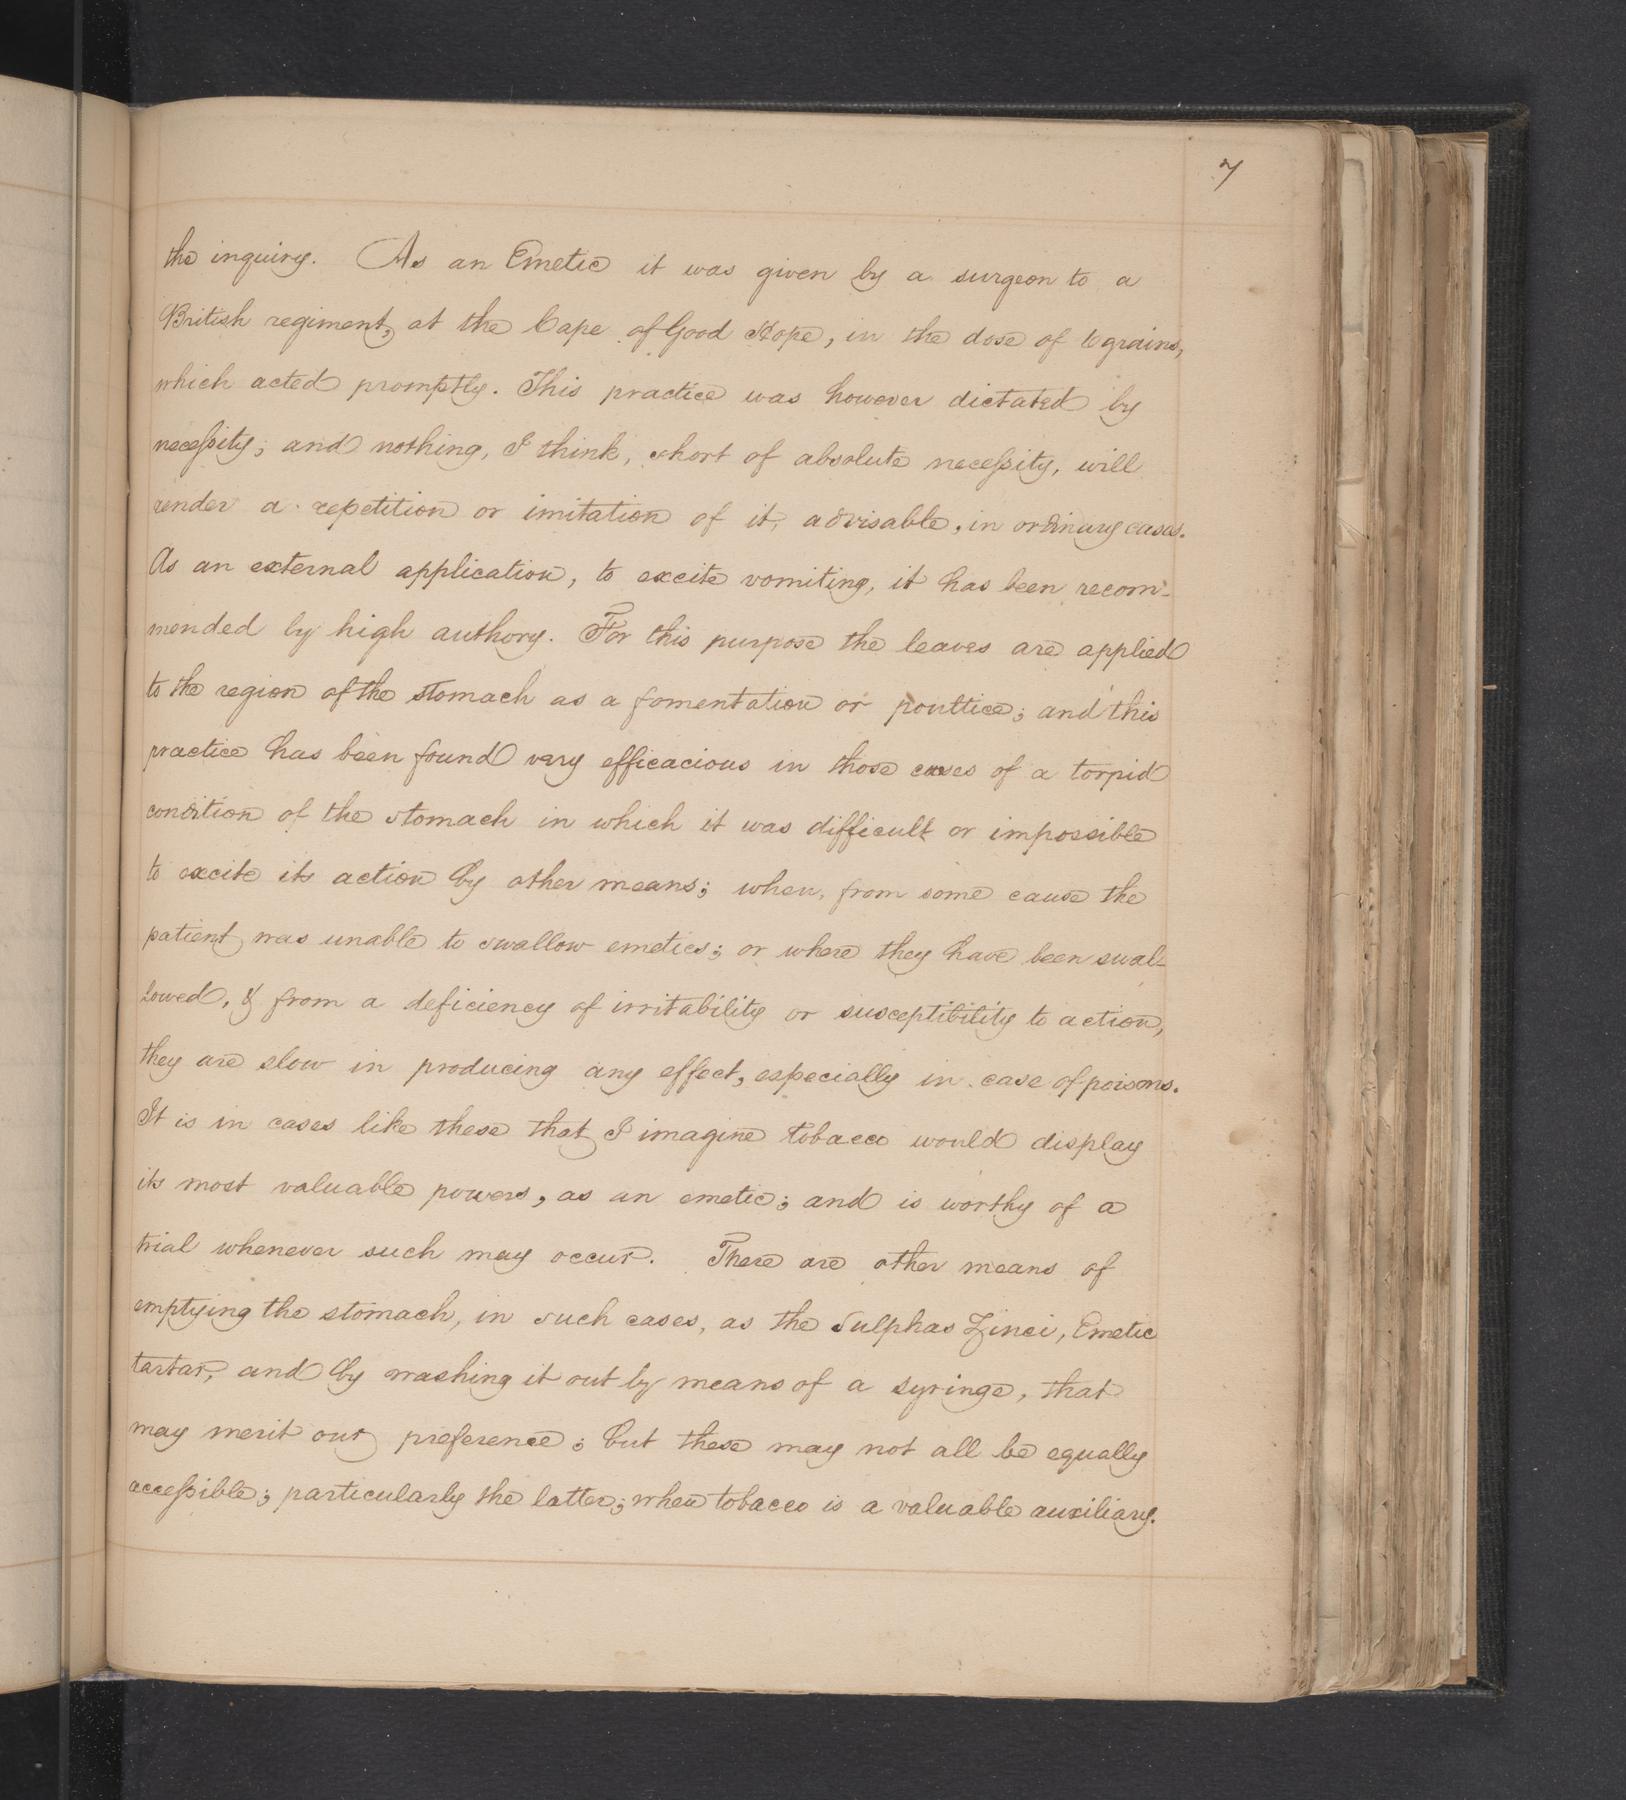 7
the inquiry. As an Emetic it was given by a surgeon to a
British regiment, at the Cape of Good Hope, in the dose of 6 grains,
which acted promptly. This practice was however dictated by
necessity; and nothing, I think, short of absolute necessity, will
render a repetition or imitation of it, advisable, in ordinary cases.
As an external application, to excite vomiting, it has been recom-
mended by high authory. For this purpose the leaves are applied
to the region of the stomach as a fomentation or poultice; and this
practice has been found very efficacious in those cases of a torpid
condition of the stomach in which it was difficult or impossible
to excite its action by other means; when, from some cause the
patient was unable to swallow emetics; or where they have been swal-
lowed, & from a deficiency of irritability or susceptibility to action,
they are slow in producing any effect, especially in case of poisons.
It is in cases like these that I imagine tobacco would display
its most valuable powers, as an emetic; and is worthy of a
trial whenever such may occur. There are other means of
emptying the stomach, in such cases, as the Sulphas Zinci, Emetic
tartar, and by washing it out by means of a syringe, that
may merit our preference; but these may not all be equally
accessible; particularly the latter; when tobacco is a valuable auxiliary.